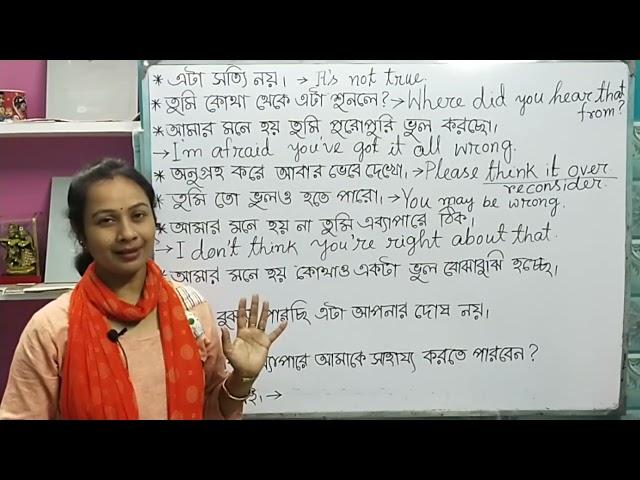 * এটা সত্যি নয়। → It's not true.
* তুমি কোথা থেকে এটা শুনলে? → Where did you hear that
from?
* আমার মনে হয় তুমি পুরোপুরি ভুল করছো।
→ I'm afraid you've got it all wrong.
* অনুগ্রহ করে আবার ভেবে দেখো। → Please think it over.
reconsider.
* তুমি তো ভুলও হতে পারো। → You may be wrong.
* আমার মনে হয় না তুমি এব্যাপারে ঠিক।
→ I don't think you're right about that.
* আমার মনে হয় কোথাও একটা ভুল বোঝাবুঝি হচ্ছে।
এটা আপনার দোষ নয়।
আমাকে সাহায্য করতে পারবেন?
→